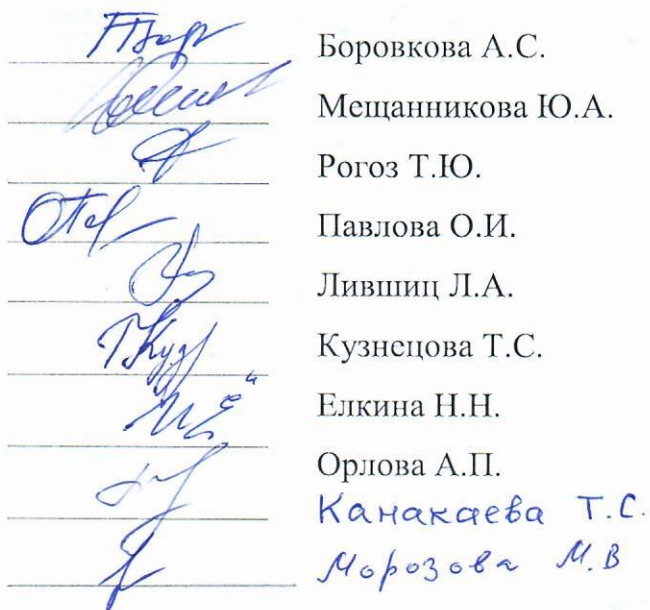 Боровкова А.С.
Мещанникова Ю.А.
Рогоз Т.Ю.
Павлова О.И.
Лившиц Л.А.
Кузнецова Т.С.
Елкина Н.Н.
Орлова А.П.
Канакаева Т.С.
Морозова М.В